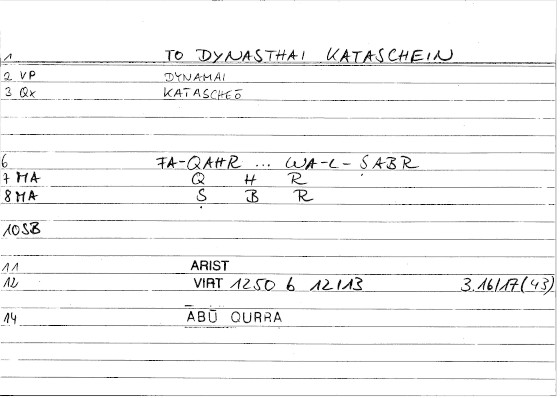 1 TO DYNASTHAI KATASCHEIN
2 VP DYNAMAI
3 Qx KATASCHEŌ
6 FA-QAHR ... WA-L-ṢABR
7 MA Q H R
8 MA Ṣ B R
10 SB
11 ARIST
12 VIRT 1250 b 12/13 3.16/17 (43)
14 ĀBŪ QURRA